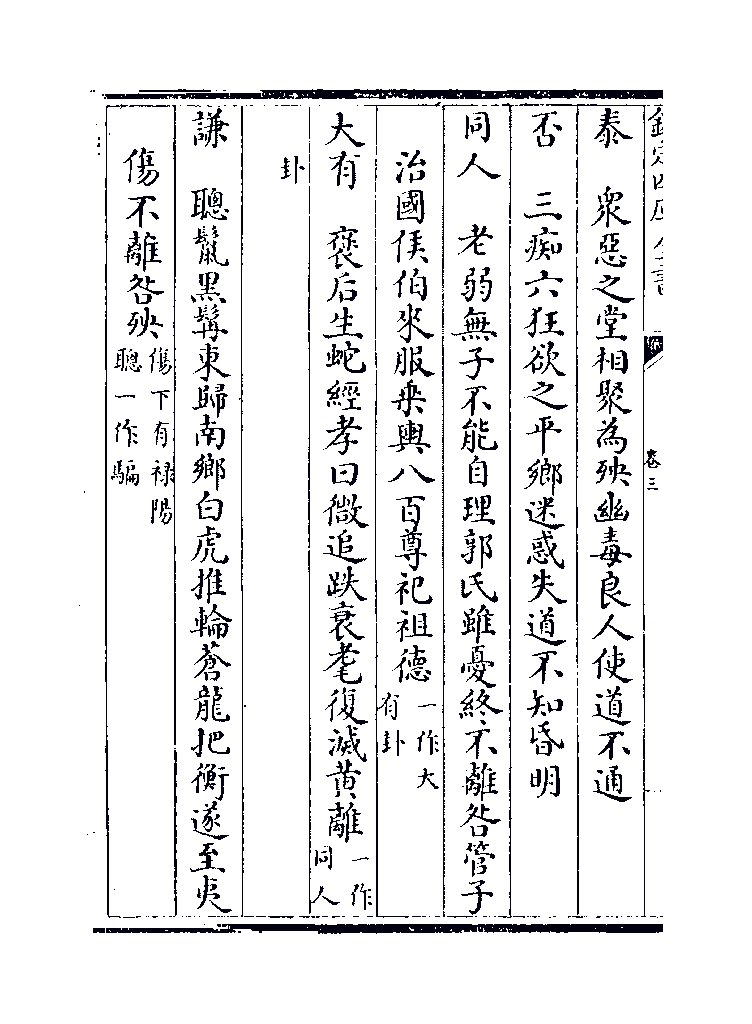 欽定四庫全書
卷三
泰　衆惡之堂相聚為殃幽毒良人使道不通
否　三痴六狂欲之平鄉迷惑失道不知昏明
同人　老弱無子不能自理郭氏雖憂終不離咎管子
治國侯伯來服乗輿八百尊祀祖德一作大有卦
大有　褒后生蛇經孝曰微追跌衰耄復滅黄離一作同人
卦
謙　聰鬣黒髯東歸南鄉白虎推輪蒼龍把衡遂至夷
傷不離咎殃傷下有禄陽聰一作騧